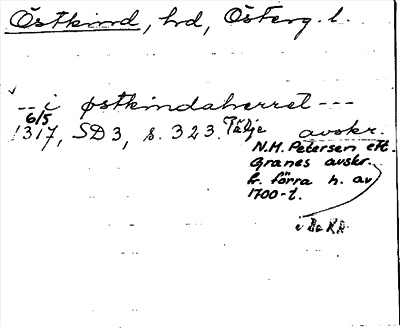 Östkind, hd, Österg. l.
-- i østkindaherret ---
6/5
1317, SD 3, s. 323. Tälje avskr.
N.M. Petersen eft.
Granes avskr.
fr. förra h. av
1700-t.
i Da RA